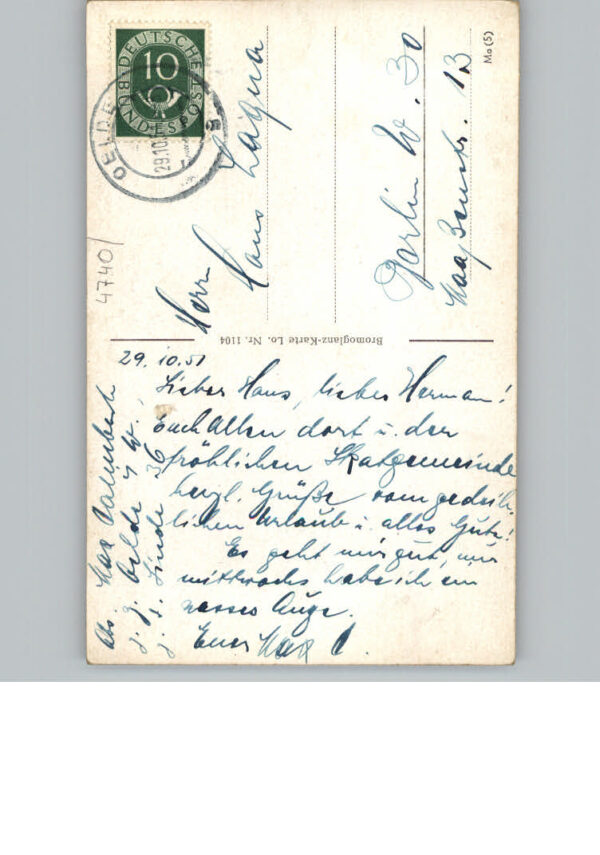 DEUTSCHE BUNDESPOST
10
OELDE
29.10.
a
Ma (5)
4740/
Herr
Hans Laqua
Berlin W. 30
Maaßenstr. 13
Bromoglanz-Karte Lo. Nr. 1104
29.10.51
Lieber Hans, lieber Herman!
Euch Allen dort u. der
fröhlichen Skatgemeinde
herzl. Grüße vom gedeih-
lichen Urlaub u. alles Gute!
Es geht mir gut, nur
mittwochs habe ich ein
nasses Auge.
Euer Max
Abs. Max
z. Z. Oelde i/W.
z. Linde 36